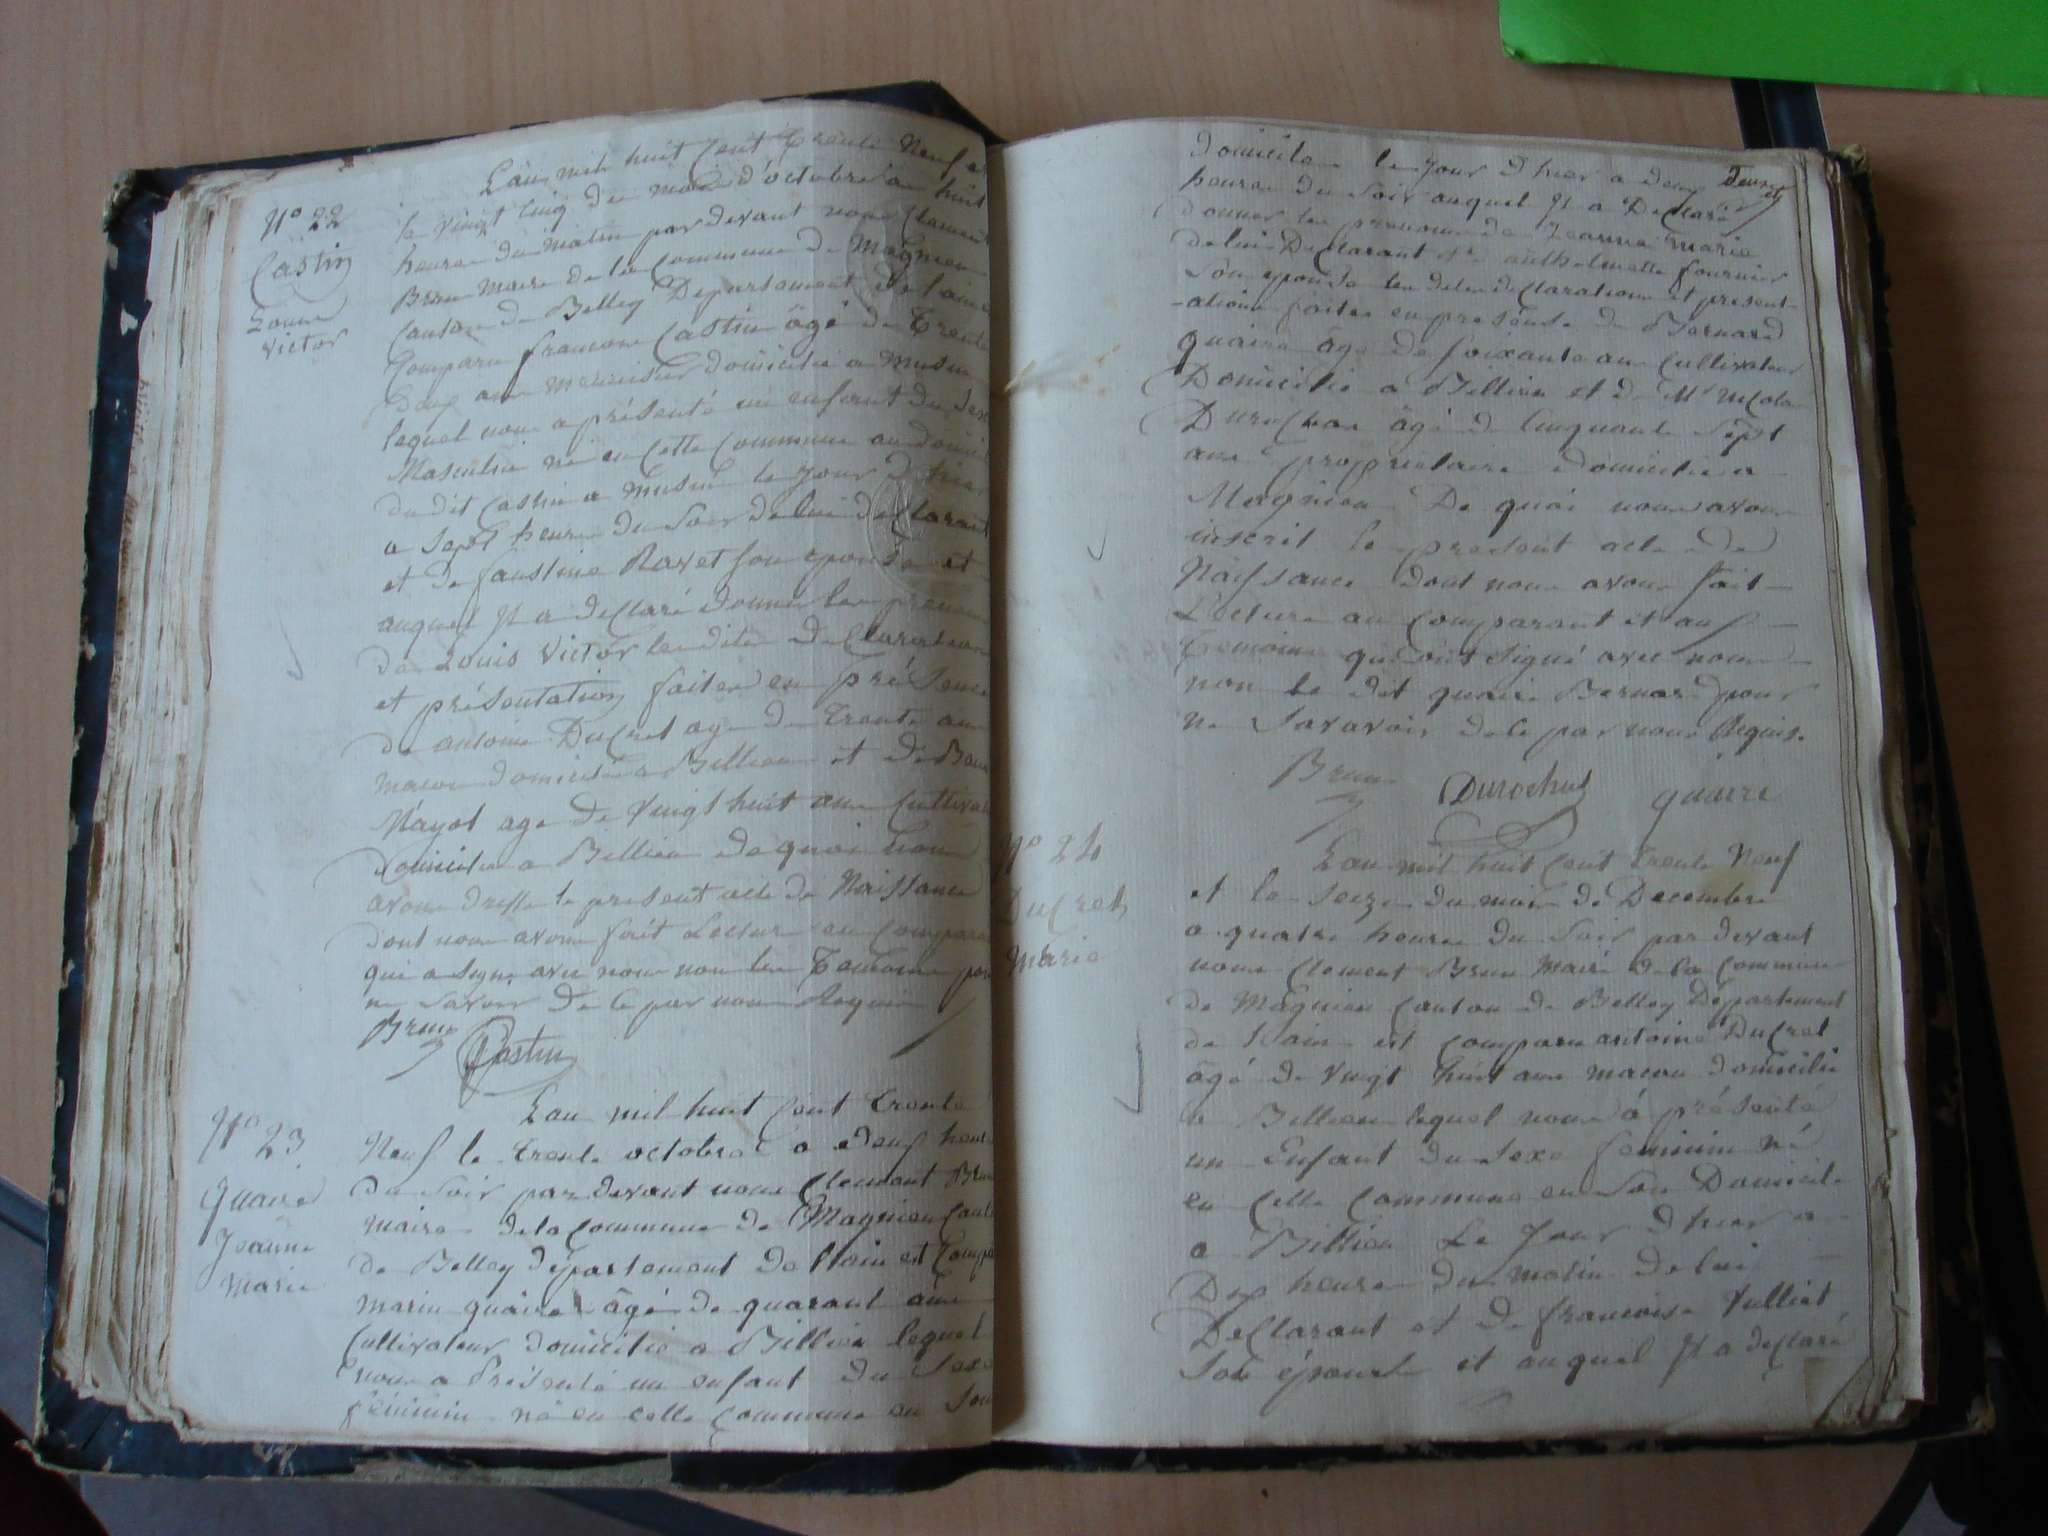 L'an mil huit Cent Trente Neuf et
N° 22
le vingt Cinq du mois d'octobre a huit
Castin
heures du matin par devant nous Clement
Louis
Brun maire de la Commune de Magnieu
Victor
Canton de Belley Departement de l'ain
Comparu francois Castin âgé de Trente
ans menuisier domicilié a Musin
lequel nous a présenté un enfant du Sexe
Masculin né en Cette Commune au domicile
du dit Castin a Musin le jour d'hier
a Sept heures du Soir de lui déClarant
et de faustine Ravet Son épouse et
auquel Il a déClaré donner les prenoms
de Louis Victor les dites déClaration
et présentation faites en présence
de antoine DuCret age de Trente ans
macon domicilié a Billieu et de
Nayot age de Vingt huit ans Cultivateur
domicilié a Billieu de quoi nous
avons dresse le present acte de Naissance
dont nous avons fait Lecture au Comparant
qui a Signé avec nous non les Temoins pour
ne Savoir de Ce par nous Requis
Brun Castin
L'an mil huit Cent Trente
N° 23
Neuf le Trente octobre a deux heures
Quaire
du Soir par devant nous Clement Brun
Jeanne
maire de la Commune de Magnieu Canton
Marie
de Belley département de l'ain est Comparu
marin quaire âgé de quarant ans
Cultivateur domicilié a Billieu lequel
nous a Présenté un enfant du Sexe
féminin né en cette Commune en Son
domicile le jour d'hier a deux
heures du Soir auquel Il a DeClaré
donner les prenoms de Jeanne Marie
de lui DeClarant et anthelmette fournier
Son epouse les dites deClarations et present-
-ations faites en présence de Bernard
quaire âgé de Soixante ans Cultivateur
Domicilié a Billieu et de Mr Nicolas
Durochat âgé de Cinquante Sept
ans propriétaire domicilié a
Magnieu De quoi nous avons
inscrit le present acte de
Naissance dont nous avons fait
Lecture au Comparant et aux
Temoins qui ont Signé avec nous
non le dit quaire Bernard pour
ne Savavoir de Ce par nous Requis.
Brun Durochat quaire
N° 24
L'an mil huit Cent Trente Neuf
DuCret
et le Seize du mois de Decembre
a quatre heures du Soir par devant
Marie
nous Clement Brun Maire de la Commune
de Magnieu Canton de Belley Département
de l'ain est Comparu antoine DuCret
âgé de Vingt huit ans macon domicilié
a Billieu lequel nous à présenté
un Enfant du Sexe féminin né
en Cette Commune en Son Domicile
a Billieu Le Jour d'hier a
Dix heures du matin de lui
DeClarant et de francoise Vulliet
Son épouse et auquel Il a déClaré